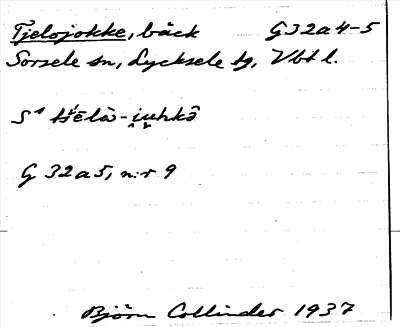 Tjelojokke, bäck G32a4-5
Sorsele sn, Lycksele tg, Vbtl.
G 32a5, n:r 9
Björn Collinder 1937